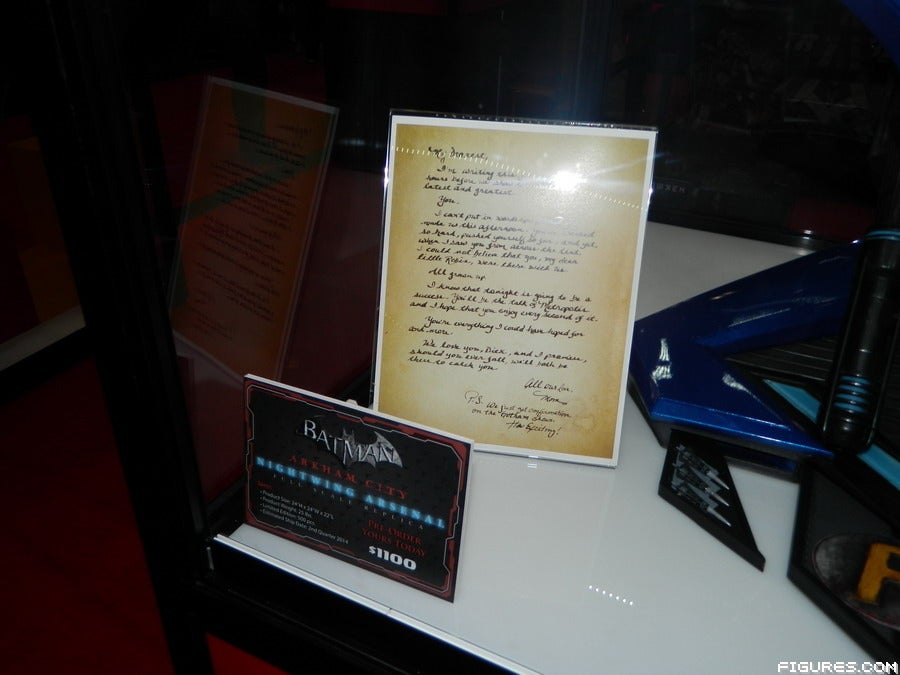 My Dearest,
I'm writing this
hours before we show
latest and greatest.
You.
I can't put in words
made us this afternoon. You've
so hard, pushed yourself so far, and yet,
when I saw you from across the tent,
I could not believe that you, my dear
little Robin, were there with us.
All grown up.
I know that tonight is going to be a
success. You'll be the talk of Metropolis
and I hope that you enjoy every second of it.
You're everything I could have hoped for
and more.
We love you, Dick, and I promise,
should you ever fall, we'll both be
there to catch you.
All our love,
Mom
P.S. We just got confirmation
on the Gotham show.
How Exciting!
BATMAN
ARKHAM CITY
NIGHTWING ARSENAL
FULL SCALE REPLICA
Specs:
• Product Size: 24"H x 24"W x 22"L
• Product Weight: 25 lbs.
• Limited Edition: 500 pcs.
• Estimated Ship Date: 2nd Quarter 2014
PRE-ORDER
YOURS TODAY
$1100
FIGURES.COM